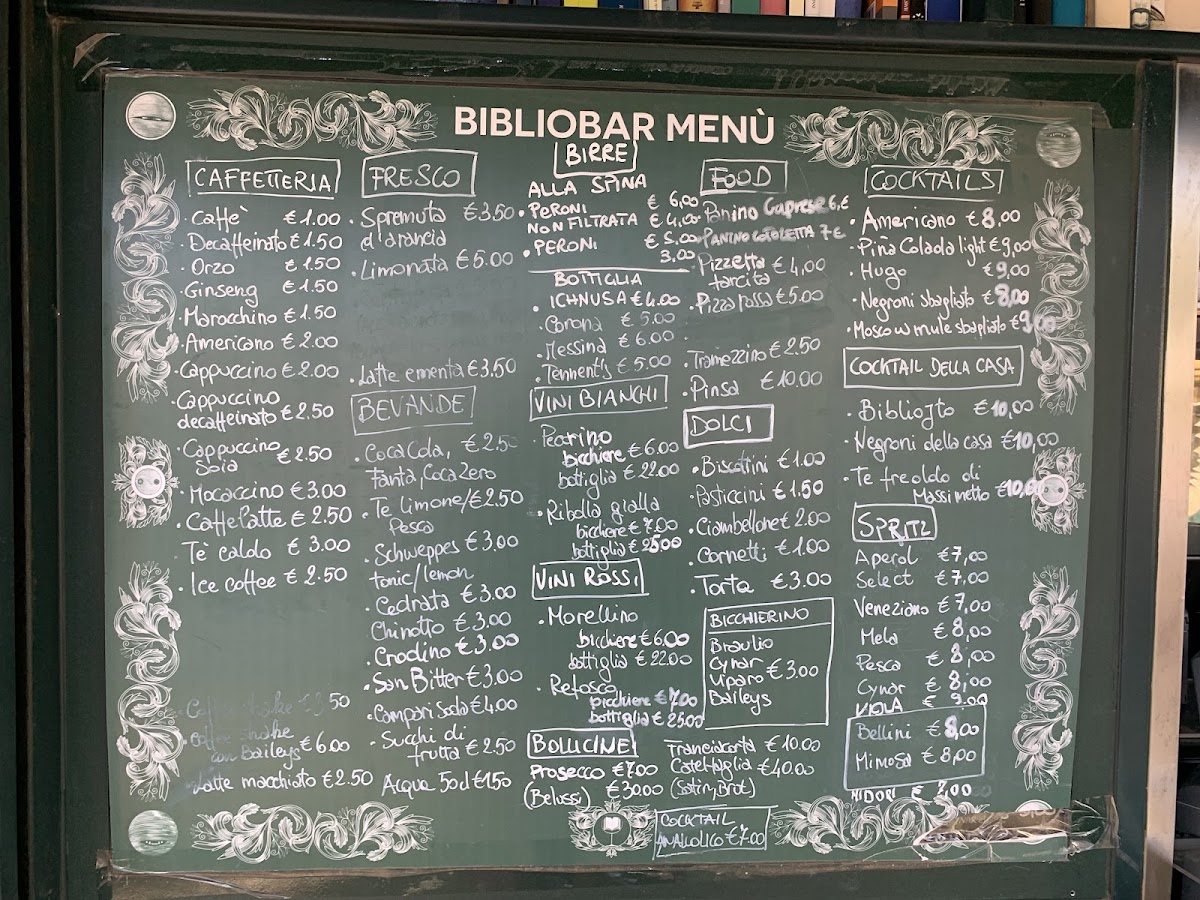 BIBLIOBAR MENÙ
CAFFETTERIA
· Caffè €1.00
· Decaffeinato €1.50
· Orzo €1.50
· Ginseng €1.50
· Marocchino €1.50
· Americano €2.00
· Cappuccino €2.00
· Cappuccino
decaffeinato €2.50
· Cappuccino
Soia €2.50
· Mocaccino €3.00
· Caffelatte €2.50
· Tè caldo €3.00
· Ice coffee €2.50
shake
con Baileys €6.00
Latte macchiato €2.50
FRESCO
· Spremuta €3.50
d'arancia
· Limonata €5.00
· Latte e menta €3.50
BEVANDE
· Coca Cola, €2.50
Fanta, Coca Zero
· Te Limone/ €2.50
Pesca
· Schweppes €3.00
tonic/lemon
· Cedrata €3.00
Chinotto €3.00
· Crodino €3.00
· San Bitter €3.00
· Campari Soda €4.00
· Succhi di
frutta €2.50
Acqua 50cl €1,50
BIRRE
ALLA SPINA
· PERONI € 6,00
NON FILTRATA € 4,00
· PERONI € 5,00
3,00
BOTTIGLIA
· ICHNUSA €4.00
· Corona € 5.00
· Messina € 6.00
· Tennent's € 5.00
VINI BIANCHI
· Pecorino
bicchiere €6.00
bottiglia €22.00
· Ribolla gialla
bicchiere €7.00
bottiglia €25.00
VINI ROSSI
· Morellino
bicchiere €6.00
bottiglia €22.00
· Refosco
bicchiere €7.00
bottiglia €25.00
BOLLICINE
Prosecco €7.00
(Belussi) €30.00
Franciacorta €10.00
Castel Faglia €40.00
(Satin, Brut)
COCKTAIL
ANALCOLICO €7.00
FOOD
Panino Caprese 6,€
PANINO COTOLETTA 7€
· Pizzetta €4,00
farcita
· Pizza rossa €5.00
· Tramezzino €2.50
· Pinsa €10.00
DOLCI
· Biscottini €1.00
· Pasticcini €1.50
· Ciambellone €2.00
· Cornetti €1.00
· Torta €3.00
BICCHIERINO
Braulio
Cynar
Viparo €3.00
Baileys
COCKTAILS
· Americano €8,00
· Piña Colada light €9,00
· Hugo €9,00
· Negroni sbagliato €8,00
· Moscow mule sbagliato €9,00
COCKTAIL DELLA CASA
· Bibliojto €10,00
· Negroni della casa €10,00
· Te freddo di
Massimetto €10,00
SPRITZ
Aperol €7,00
Select €7,00
Veneziano €7,00
Mela €8,00
Pesca €8,00
Cynar €8,00
VIOLA €
Bellini €8,00
Mimosa €8,00
MIDORI €